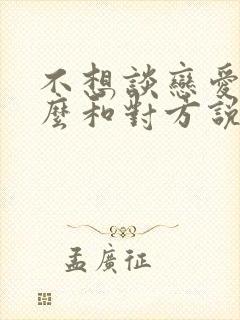 不想談戀愛
麼和對方說
孟廣征